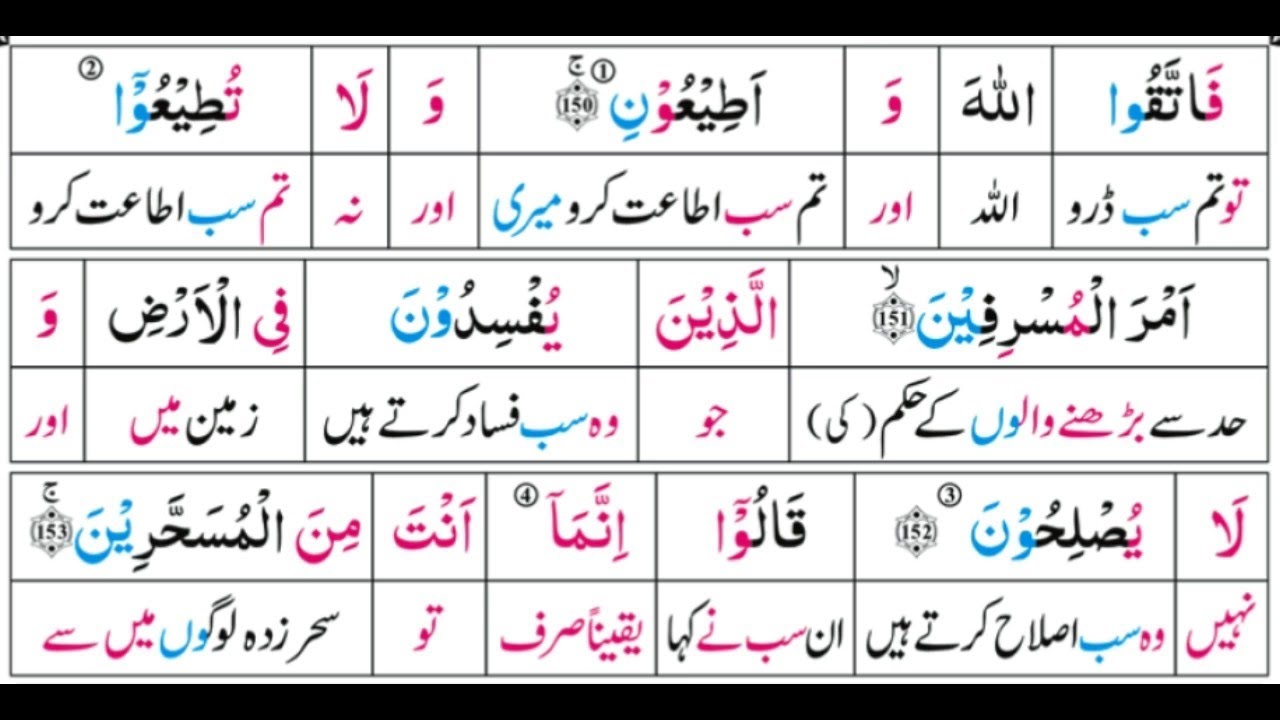 فَاتَّقُوا اللّٰهَ وَ اَطِيْعُوْنِ ① ج 150 وَ لَا تُطِيْعُوْٓا ②
تو تم سب ڈرو اللہ اور تم سب اطاعت کرو میری اور نہ تم سب اطاعت کرو
اَمْرَ الْمُسْرِفِيْنَ لا 151 الَّذِيْنَ يُفْسِدُوْنَ فِي الْاَرْضِ وَ
حد سے بڑھنے والوں کے حکم (کی) جو وہ سب فساد کرتے ہیں زمین میں اور
لَا يُصْلِحُوْنَ ③ 152 قَالُوْٓا اِنَّمَآ ④ اَنْتَ مِنَ الْمُسَحَّرِيْنَ ج 153
نہیں وہ سب اصلاح کرتے ہیں ان سب نے کہا یقیناً صرف تو سحر زدہ لوگوں میں سے